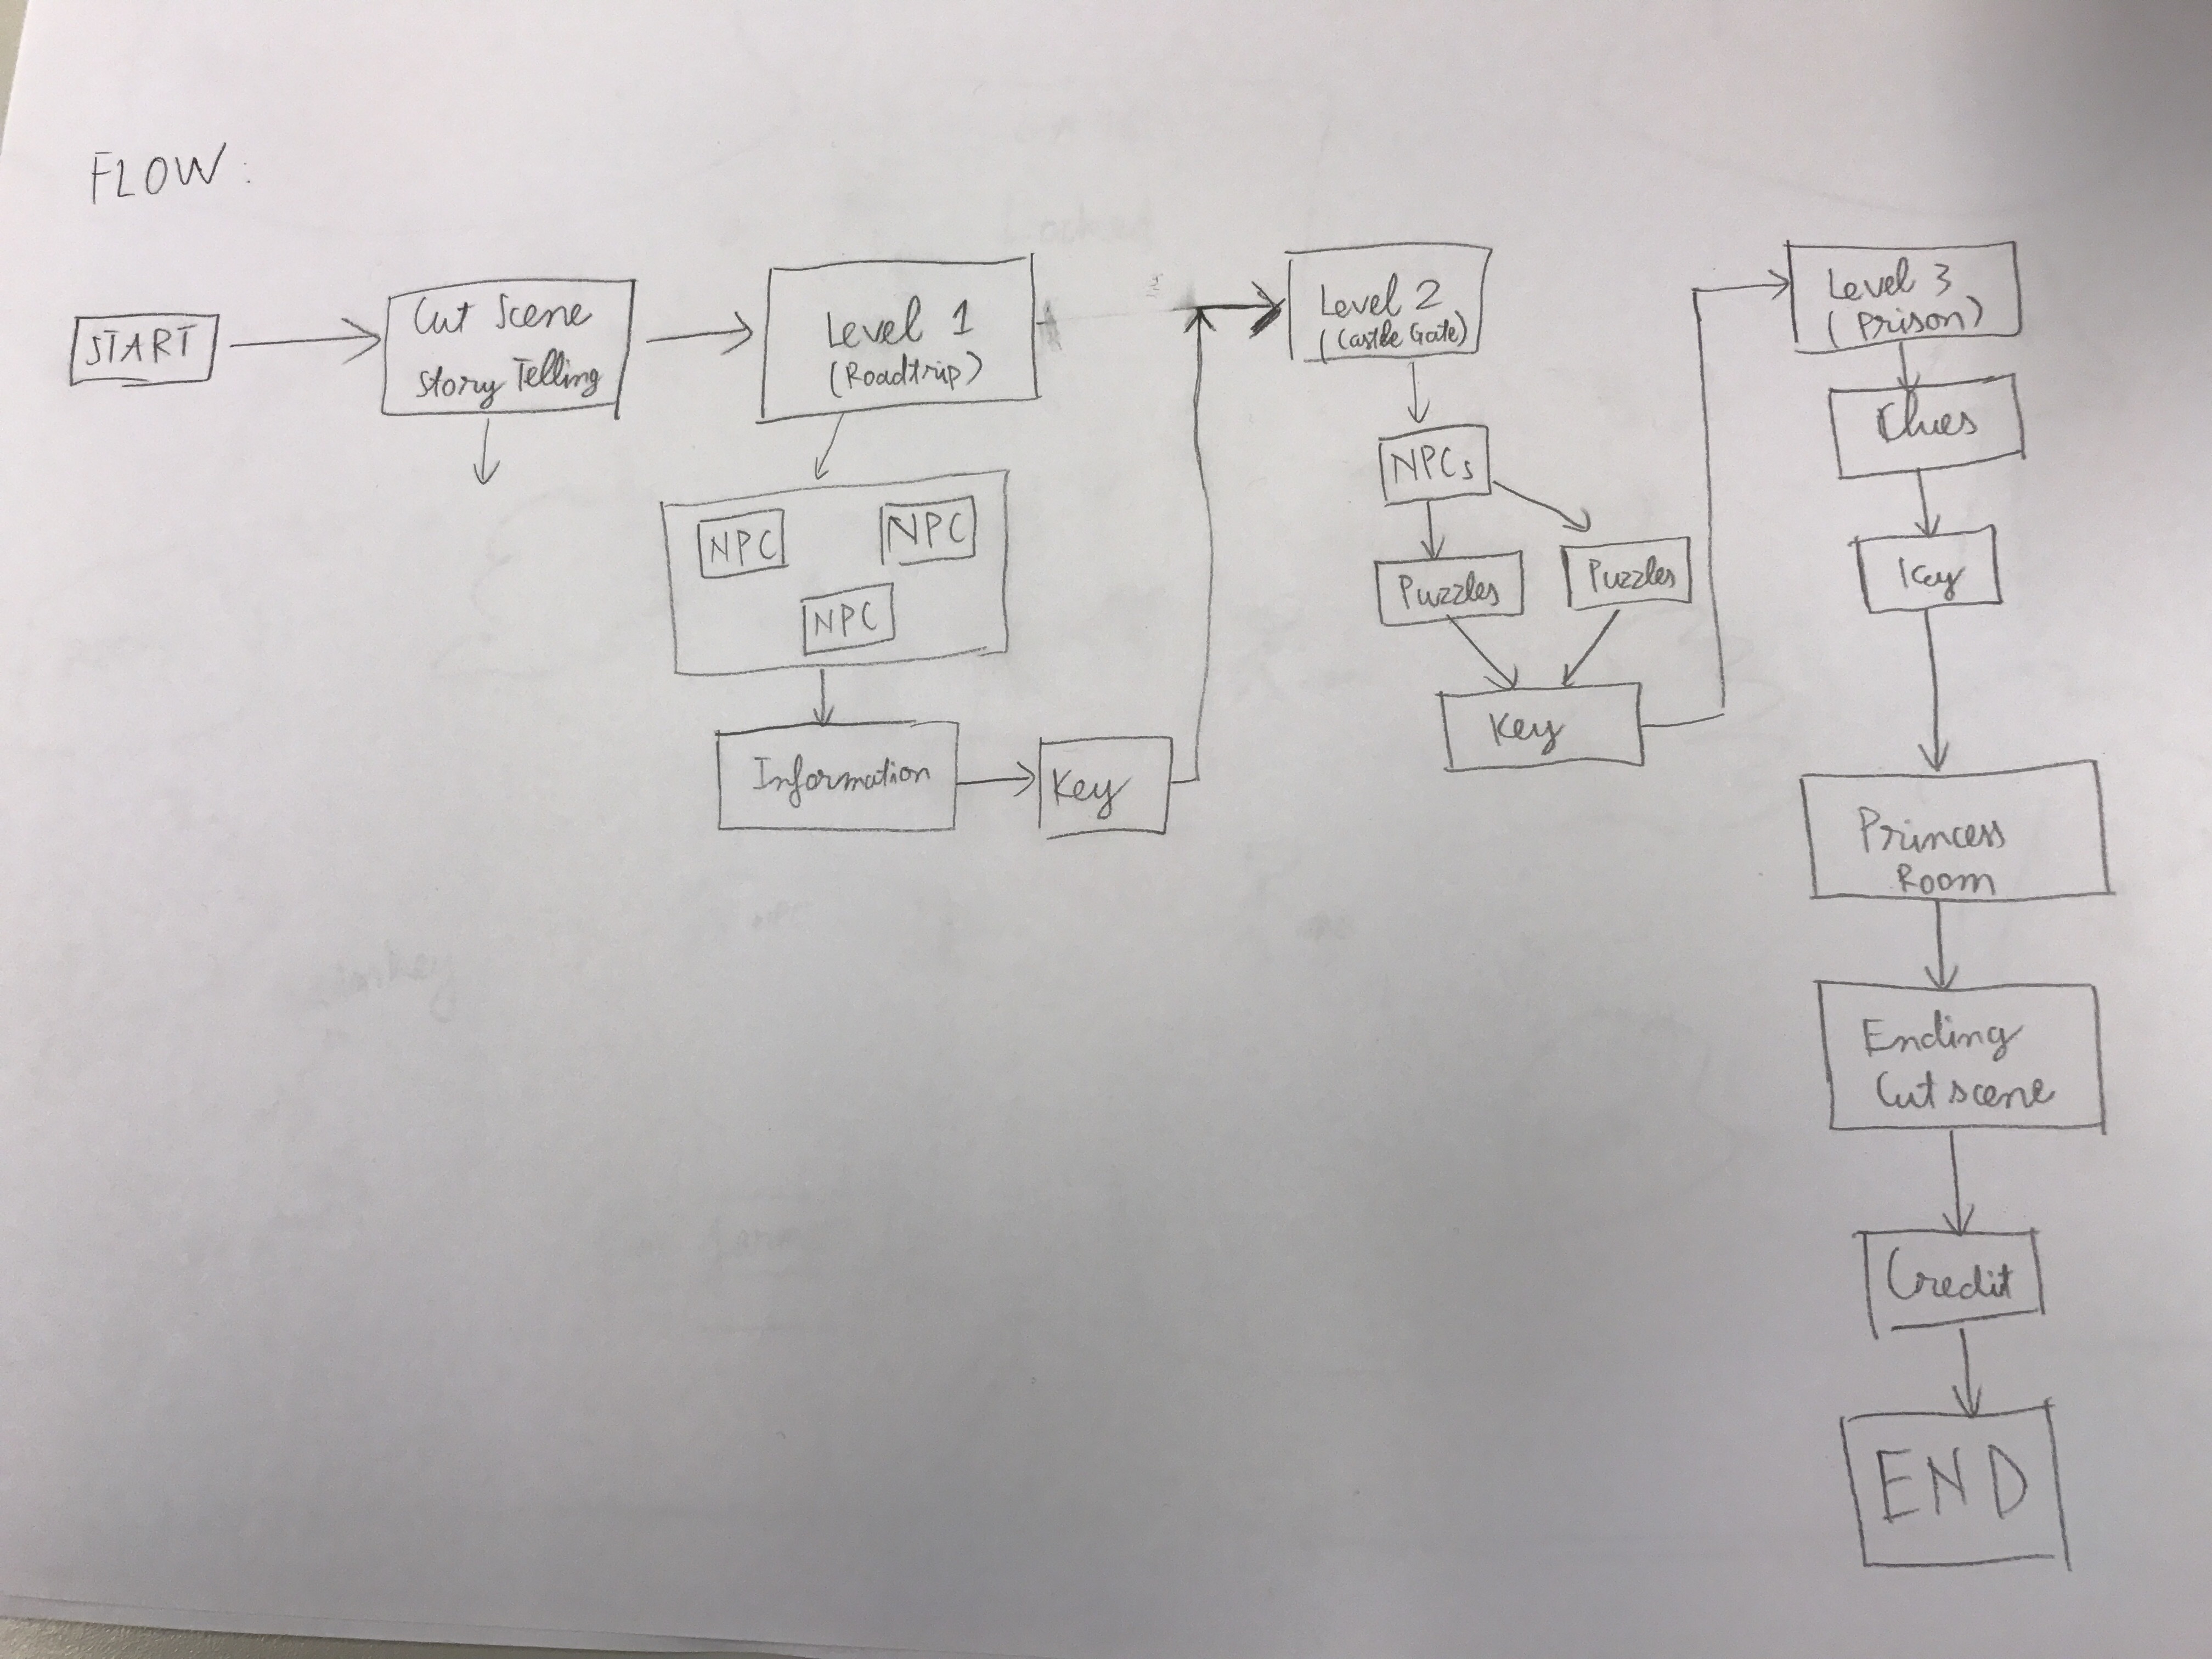 FLOW:
START
Cut Scene
Story Telling
Level 1
(Roadtrip)
NPC
NPC
NPC
Information
Key
Level 2
(Castle Gate)
NPCs
Puzzles
Puzzles
Key
Level 3
(Prison)
Clues
Key
Princess
Room
Ending
Cut scene
Credit
END